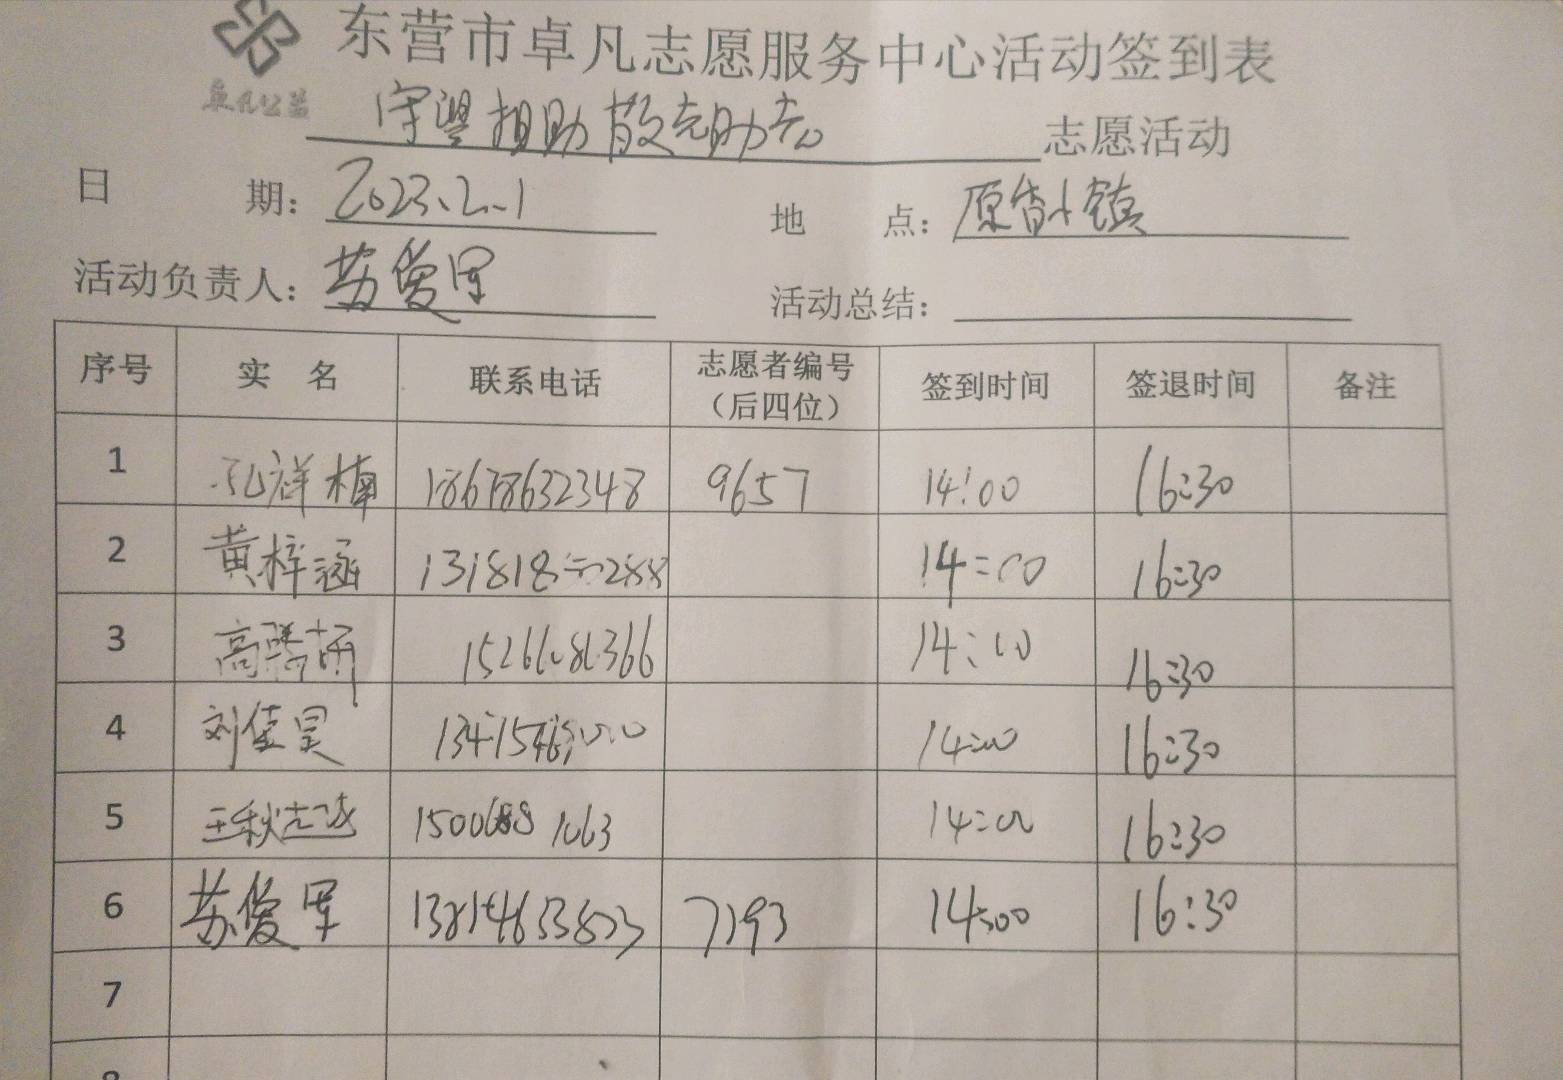 东营市卓凡志愿服务中心活动签到表
卓凡公益
守望相助 志愿活动
日 期: 2023.2.1 地 点: 原香小镇
活动负责人: 苏俊军 活动总结:
序号 实 名 联系电话 志愿者编号（后四位） 签到时间 签退时间 备注
1 祥楠 18678632348 9657 14:00 16:30
2 黄梓涵 14:00 16:30
3 高腾 14:00 16:30
4 刘佳昊 14:00 16:30
5 王秋 15006881063 14:00 16:30
6 苏俊军 7193 14:00 16:30
7
8